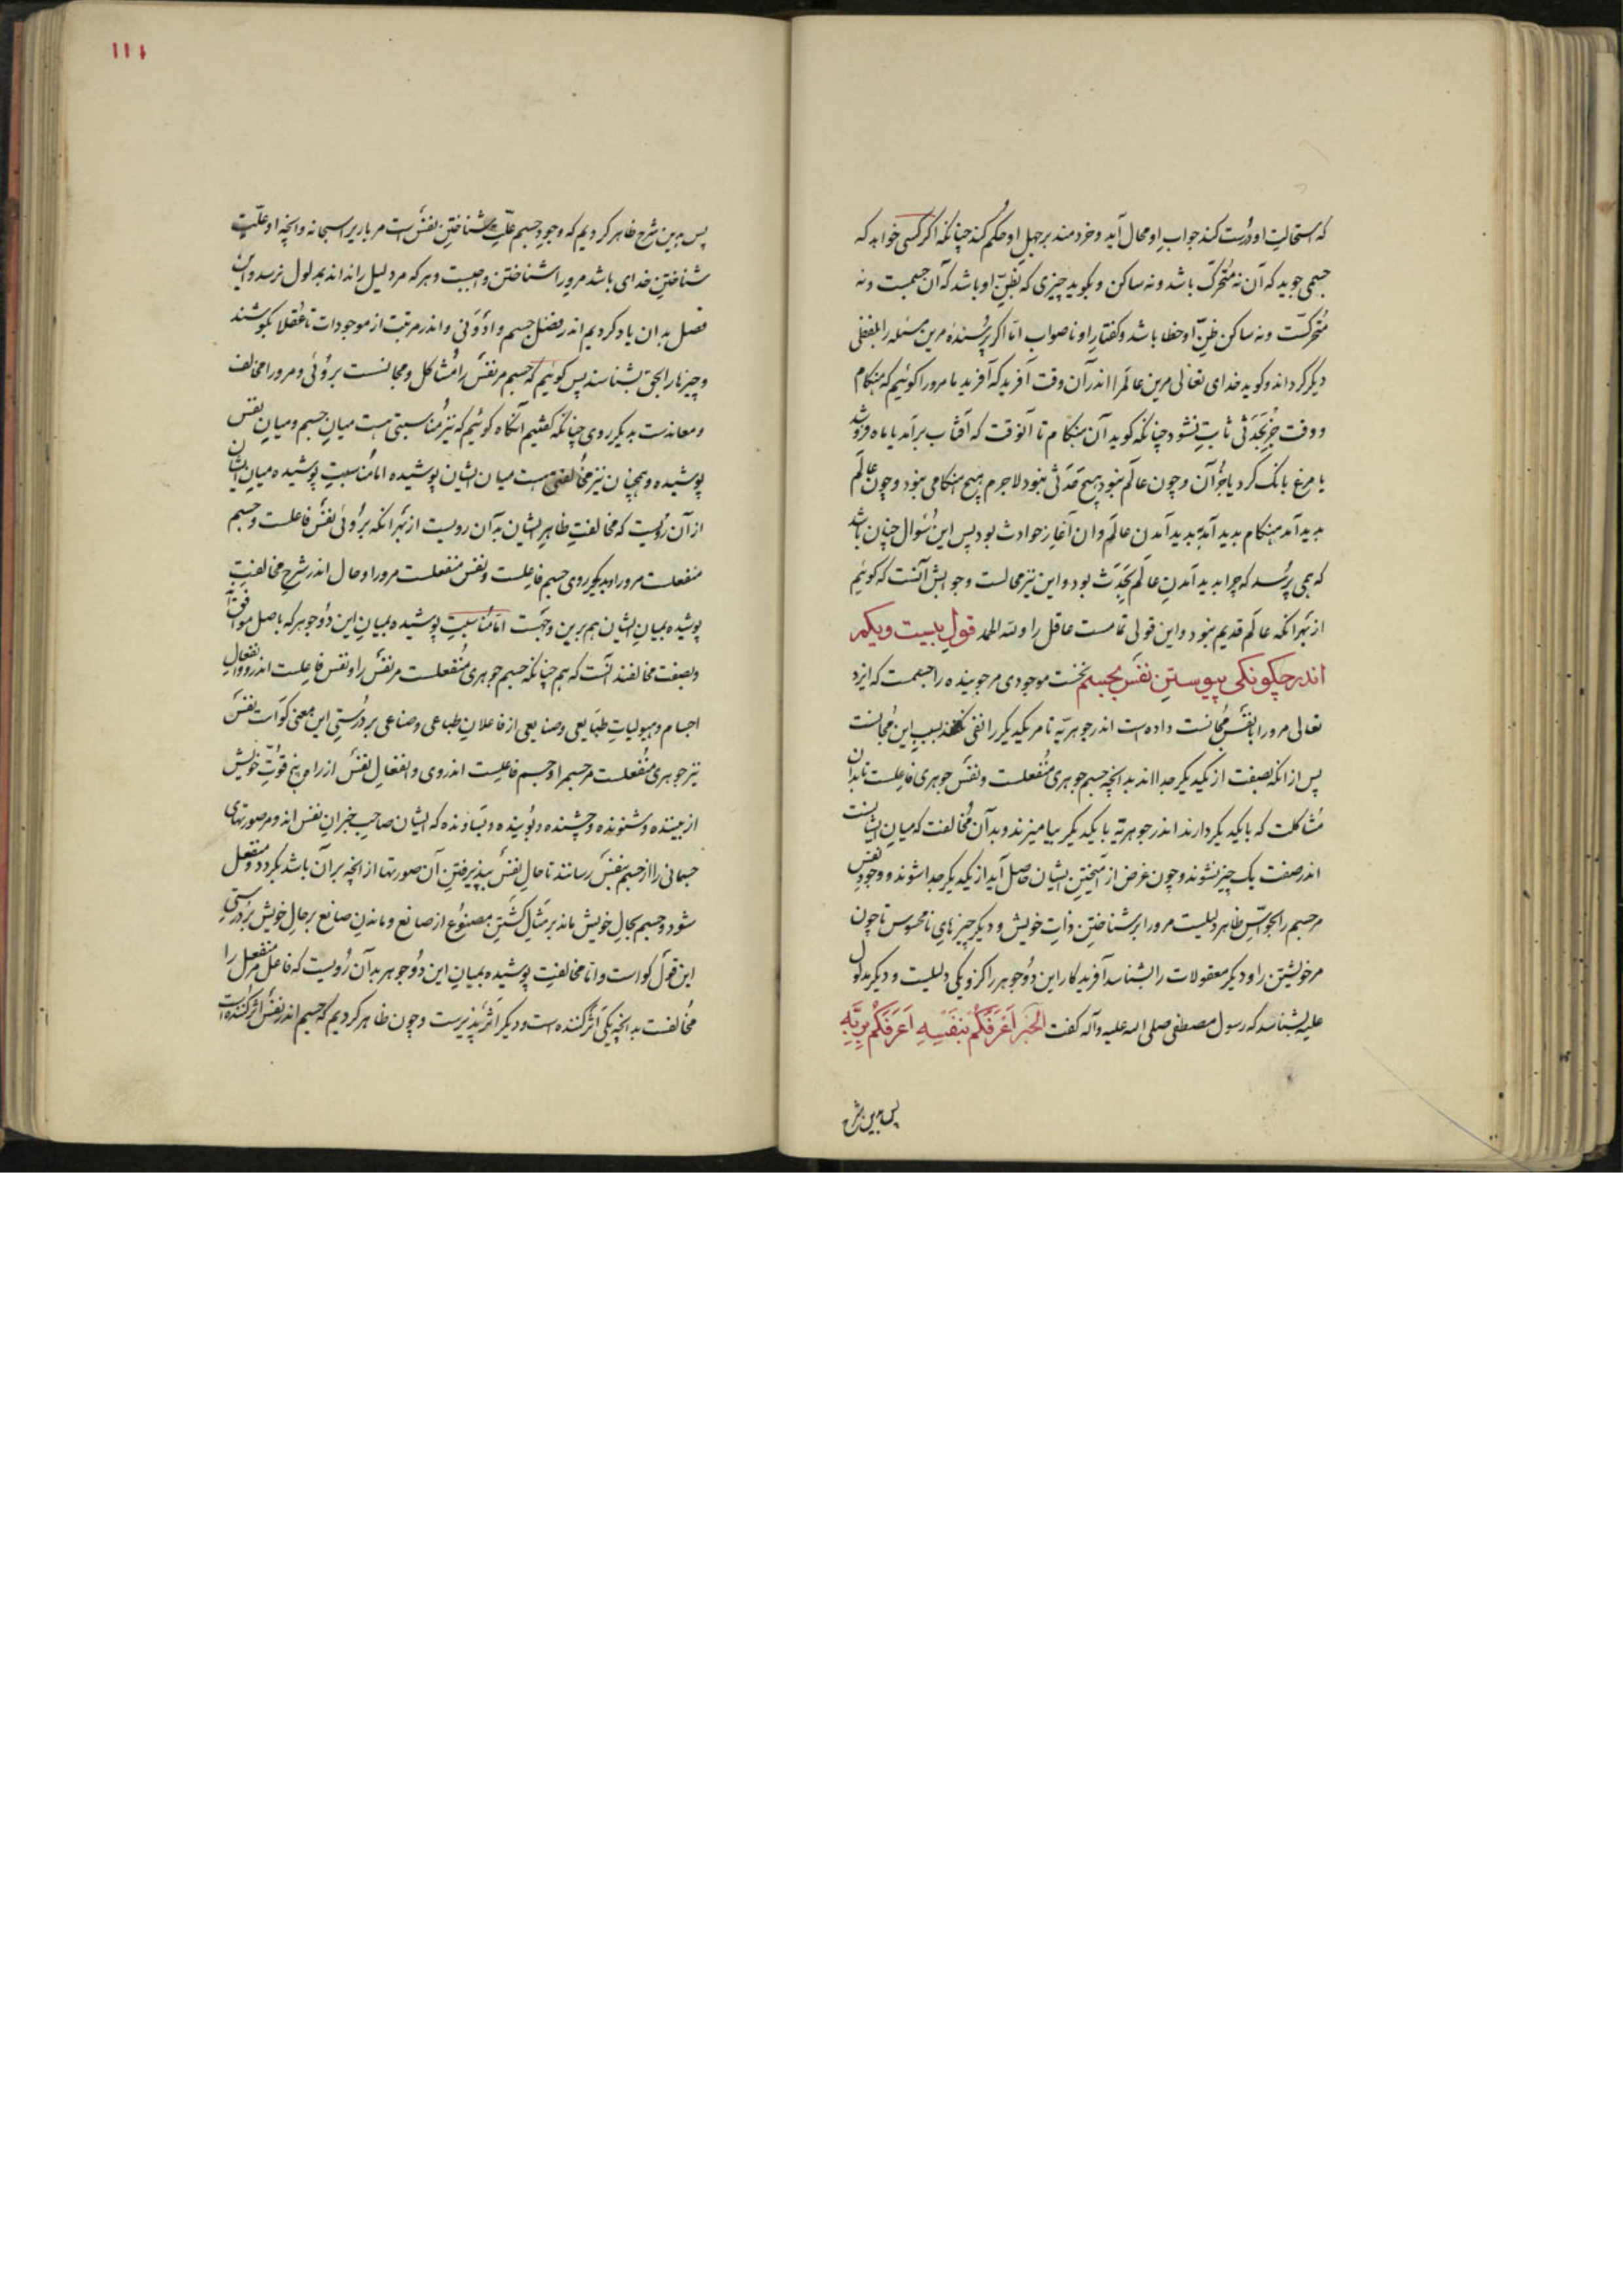 که استحالت او درست کند جواب او محال آید و خردمند بر جهل او حکم کند چنانکه اگر کسی خواهد که
جسمی جوید که آن نه متحرک باشد و نه ساکن و بگوید چیزی که بظنّ او باشد که آن جسمست و نه
مُتحرکست و نه ساکن ظنّ او خطا باشد و کفتار او ناصواب امّا اکر پرسنده مرین مسئله را بلفظی
دیکر کرداند و کوید خدای تعالی مرین عالم را اندر آن وقت آفرید که آفرید ما مرورا کوئیم که هنکام
و وقت جز بحَدَثی ثابت نشود چنانکه کوید آن هنکام تا آنوقت که آفتاب برآمد یا ماه فروشد
یا مرغ بانک کرد یا جز آن و چون عالم نبود هیچ حَدَثی نبود لاجرم هیچ هنکامی نبود و چون عالم
پدید آمد هنکام پدید آمد به پدید آمدن عالم و آن آغاز حوادث بود پس این سُوال چنان باشد
که همی پرسد که چرا پدید آمدن عالم بحَدَث بود و این نیز محالست و جوابش آنست که کوئیم
از بهر انکه عالم قدیم نبود و این قولی تمامست عاقل را و لله الحمد قول بیست و یکم
اندر چکونکی پیوستن نفس بجسم نخست موجودی مر جوینده را جسمست که ایزد
تعالی مرورا با نفس مُجانست داده است اندر جوهریّه تا مر یکدیکر را نفی نکنند بسبب این مُجانست
پس از انکه بصفت از یکدیکر جدا اند بدانچه جسم جوهری مُنفعلست و نفس جوهری فاعلست تا بدان
مُشاکلت که با یکدیکر دارند اندر جوهریة با یکدیکر بیامیزند و بدان مُخالفت که میان ایشانست
اندر صفت یک چیز نشوند و چون غرض از آمیختن ایشان حاصل آید از یکدیکر جدا شوند و وجود نفس
مر جسم را بحواسّ ظاهر دلیلست مرورا بر شناختن ذات خویش و دیکر چیزهای نامحسوس تا چون
مر خویشتن را و دیکر معقولات را بشناسد آفریدکار این دو جوهر را کزو یکی دلیلست و دیکر مدلول
علیه بشناسد که رسول مصطفی صلی الله علیه وآله کفت الخبر اَعرَفُکُم بِنَفسِهِ اَعرَفُکُم بِرَبِّهِ
پس بدین شرح
١١١
پس بدین شرح ظاهر کردیم که وجود جسم علّت شناختن نفس است مر باری سبحانه و انچه او علّت
شناختن خدای باشد مرورا شناختن واجبست و هر که مر دلیل را نداند بمدلول نرسد و این
فصل بدان یاد کردیم اندر فضل جسم و اندر مرتبت از موجودات تا عقلا بکوشند
و چیزها را بحق بشناسند پس کوئیم که جسم مر نفس را مُشاکل و مجانست بروئی و مرورا مخالف
و معاندست بدیکر روی چنانکه کفتیم آنکاه کوئیم که نیز مُناسبتی هست میان جسم و میان نفس
پوشیده و همچنان نیز مخالفتی هست میان ایشان پوشیده امّا مُناسبت پوشیده میان ایشان
از آن رویست که مخالفت ظاهر ایشان بدان رویست از بهر انکه بروئی نفس فاعلست و جسم
منفعلست مرورا و بدیکر روی جسم فاعلست و نفس منفعلست مرورا و حال اندر شرح مخالفت
پوشیده بمیان ایشان هم برین وجهست امّا مُناسبت پوشیده بمیان این دو جوهر که باصل موافق اند
و بصفت مخالفند آنست که همچنانکه جسم جوهری مُنفعلست مر نفس را و نفس فاعلست اندرو و انفعال
اجسام و هیولیات طبایعی و صنایعی از فاعلان طباعی و صناعی بر درستی این معنی کواست نفس
نیز جوهری مُنفعلست مر جسم را و جسم فاعلست اندروی و انفعال نفس از راه پنج قوّت خویش
از بیننده و شنونده و چشنده و بوینده و بساونده که ایشان صاحب خبران نفس اند و مر صورتهای
جسمانی را از جسم بنفس رسانند تا حال نفس بپذیرفتن آن صورتها از انچه بر آن باشد بکردد و منفعل
شود و جسم بحال خویش ماند بر مثال کشتن مصنوع از صانع و ماندن صانع بر حال خویش بر درستی
این قول کواست و امّا مخالفت پوشیده بمیان این دو جوهر بدان رویست که فاعل مر منفعل را
مخالفست بدانچه یکی اثر کننده است و دیکر اثر پذیرست و چون ظاهر کردیم که جسم اندر نفس اثر کننده است